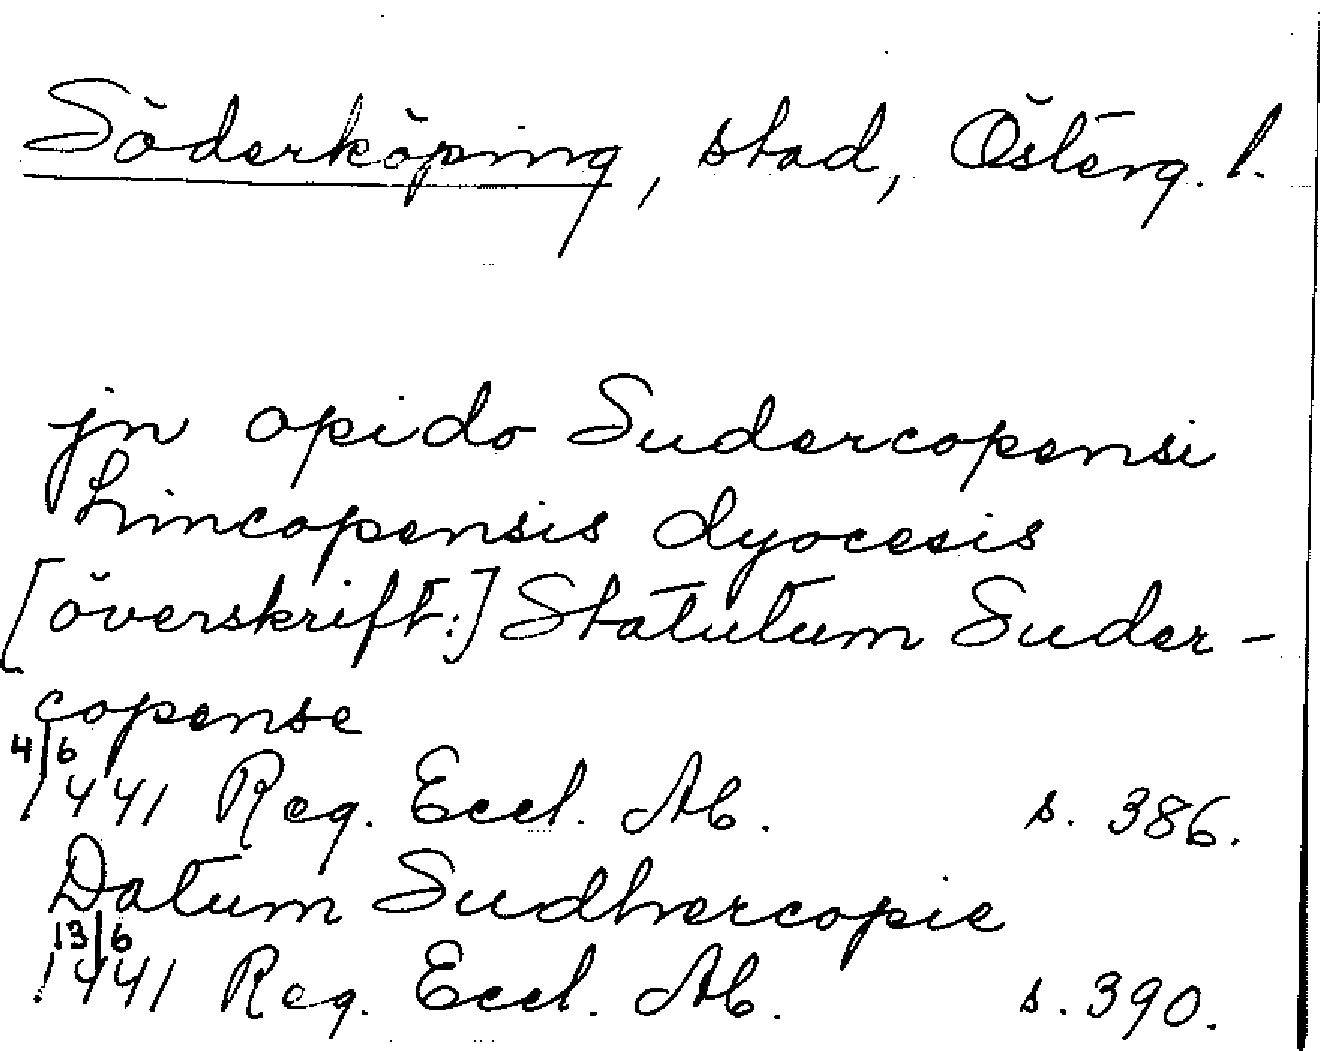 Söderköping, stad, Österg. l.
jn opido Sudercopensi
Lincopensis dyocesis
[överskrift:] Statutum Suder-
copense
4/6
1441 Reg. Eccl. Ab. s. 386.
Datum Sudhercopie
13/6
1441 Reg. Eccl. Ab. s. 390.